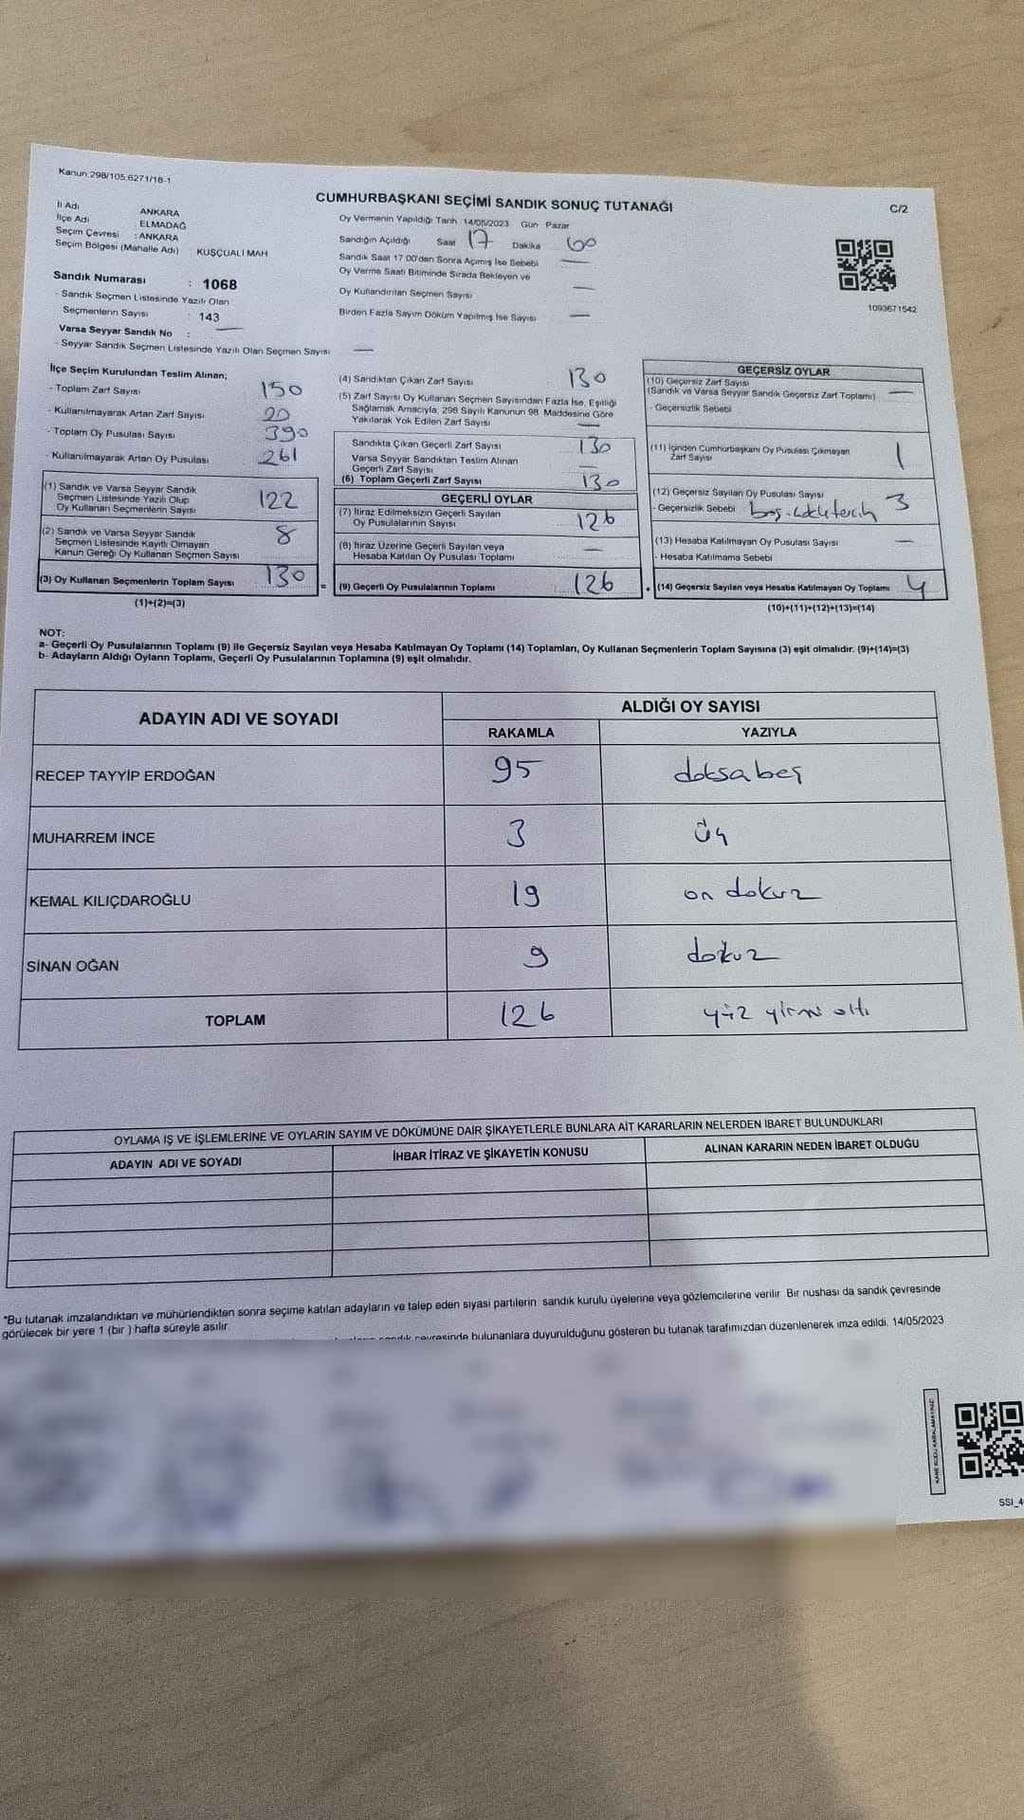 Kanun:298/105.6271/18-1
CUMHURBAŞKANI SEÇİMİ SANDIK SONUÇ TUTANAĞI
C/2
İl Adı ANKARA
İlçe Adı : ELMADAĞ
Seçim Çevresi : ANKARA
Seçim Bölgesi (Mahalle Adı) KUŞÇUALİ MAH
Oy Vermenin Yapıldığı Tarih 14/05/2023 Gün Pazar
Sandığın Açıldığı Saat 17 Dakika 00
Sandık Saat 17 00'den Sonra Açımış İse Sebebi —
Oy Verme Saati Bitiminde Sırada Bekleyen ve
Oy Kullandırılan Seçmen Sayısı —
Birden Fazla Sayım Döküm Yapılmış İse Sayısı —
1093671542
Sandık Numarası : 1068
- Sandık Seçmen Listesinde Yazılı Olan
Seçmenlerin Sayısı : 143
Varsa Seyyar Sandık No : —
- Seyyar Sandık Seçmen Listesinde Yazılı Olan Seçmen Sayısı —
İlçe Seçim Kurulundan Teslim Alınan;
- Toplam Zarf Sayısı 150
- Kullanılmayarak Artan Zarf Sayısı 20
- Toplam Oy Pusulası Sayısı 390
- Kullanılmayarak Artan Oy Pusulası 261
(1) Sandık ve Varsa Seyyar Sandık
Seçmen Listesinde Yazılı Olup
Oy Kullanan Seçmenlerin Sayısı 122
(2) Sandık ve Varsa Seyyar Sandık
Seçmen Listesinde Kayıtlı Olmayan
Kanun Gereği Oy Kullanan Seçmen Sayısı 8
(3) Oy Kullanan Seçmenlerin Toplam Sayısı 130
(1)+(2)=(3)
(4) Sandıktan Çıkan Zarf Sayısı 130
(5) Zarf Sayısı Oy Kullanan Seçmen Sayısından Fazla İse, Eşitliği
Sağlamak Amacıyla, 298 Sayılı Kanunun 98. Maddesine Göre
Yakılarak Yok Edilen Zarf Sayısı —
Sandıkta Çıkan Geçerli Zarf Sayısı 130
Varsa Seyyar Sandıktan Teslim Alınan
Geçerli Zarf Sayısı —
(6) Toplam Geçerli Zarf Sayısı 130
GEÇERLİ OYLAR
(7) İtiraz Edilmeksizin Geçerli Sayılan
Oy Pusulalarının Sayısı 126
(8) İtiraz Üzerine Geçerli Sayılan veya
Hesaba Katılan Oy Pusulası Toplamı —
= (9) Geçerli Oy Pusulalarının Toplamı 126
GEÇERSİZ OYLAR
(10) Geçersiz Zarf Sayısı
(Sandık ve Varsa Seyyar Sandık Geçersiz Zarf Toplamı) —
- Geçersizlik Sebebi
(11) İçinden Cumhurbaşkanı Oy Pusulası Çıkmayan
Zarf Sayısı 1
(12) Geçersiz Sayılan Oy Pusulası Sayısı 3
- Geçersizlik Sebebi boş-çoklu tercih
(13) Hesaba Katılmayan Oy Pusulası Sayısı —
- Hesaba Katılmama Sebebi
(14) Geçersiz Sayılan veya Hesaba Katılmayan Oy Toplamı 4
(10)+(11)+(12)+(13)=(14)
NOT:
a- Geçerli Oy Pusulalarının Toplamı (9) ile Geçersiz Sayılan veya Hesaba Katılmayan Oy Toplamı (14) Toplamları, Oy Kullanan Seçmenlerin Toplam Sayısına (3) eşit olmalıdır. (9)+(14)=(3)
b- Adayların Aldığı Oyların Toplamı, Geçerli Oy Pusulalarının Toplamına (9) eşit olmalıdır.
ADAYIN ADI VE SOYADI ALDIĞI OY SAYISI
RAKAMLA YAZIYLA
RECEP TAYYİP ERDOĞAN 95 doksabeş
MUHARREM İNCE 3 üç
KEMAL KILIÇDAROĞLU 19 on dokuz
SİNAN OĞAN 9 dokuz
TOPLAM 126 yüz yirmi altı
OYLAMA İŞ VE İŞLEMLERİNE VE OYLARIN SAYIM VE DÖKÜMÜNE DAİR ŞİKAYETLERLE BUNLARA AİT KARARLARIN NELERDEN İBARET BULUNDUKLARI
ADAYIN ADI VE SOYADI İHBAR İTİRAZ VE ŞİKAYETİN KONUSU ALINAN KARARIN NEDEN İBARET OLDUĞU
*Bu tutanak imzalandıktan ve mühürlendikten sonra seçime katılan adayların ve talep eden siyasi partilerin sandık kurulu üyelerine veya gözlemcilerine verilir Bir nüshası da sandık çevresinde
görülecek bir yere 1 (bir ) hafta süreyle asılır
sandık çevresinde bulunanlara duyurulduğunu gösteren bu tutanak tarafımızdan düzenlenerek imza edildi. 14/05/2023
KARE KODU KARALAMAYINIZ!
SSI_4